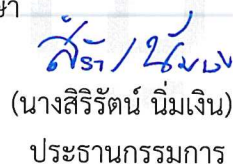 ษา
(นางสิริรัตน์ นิ่มเงิน)
ประธานกรรมการ